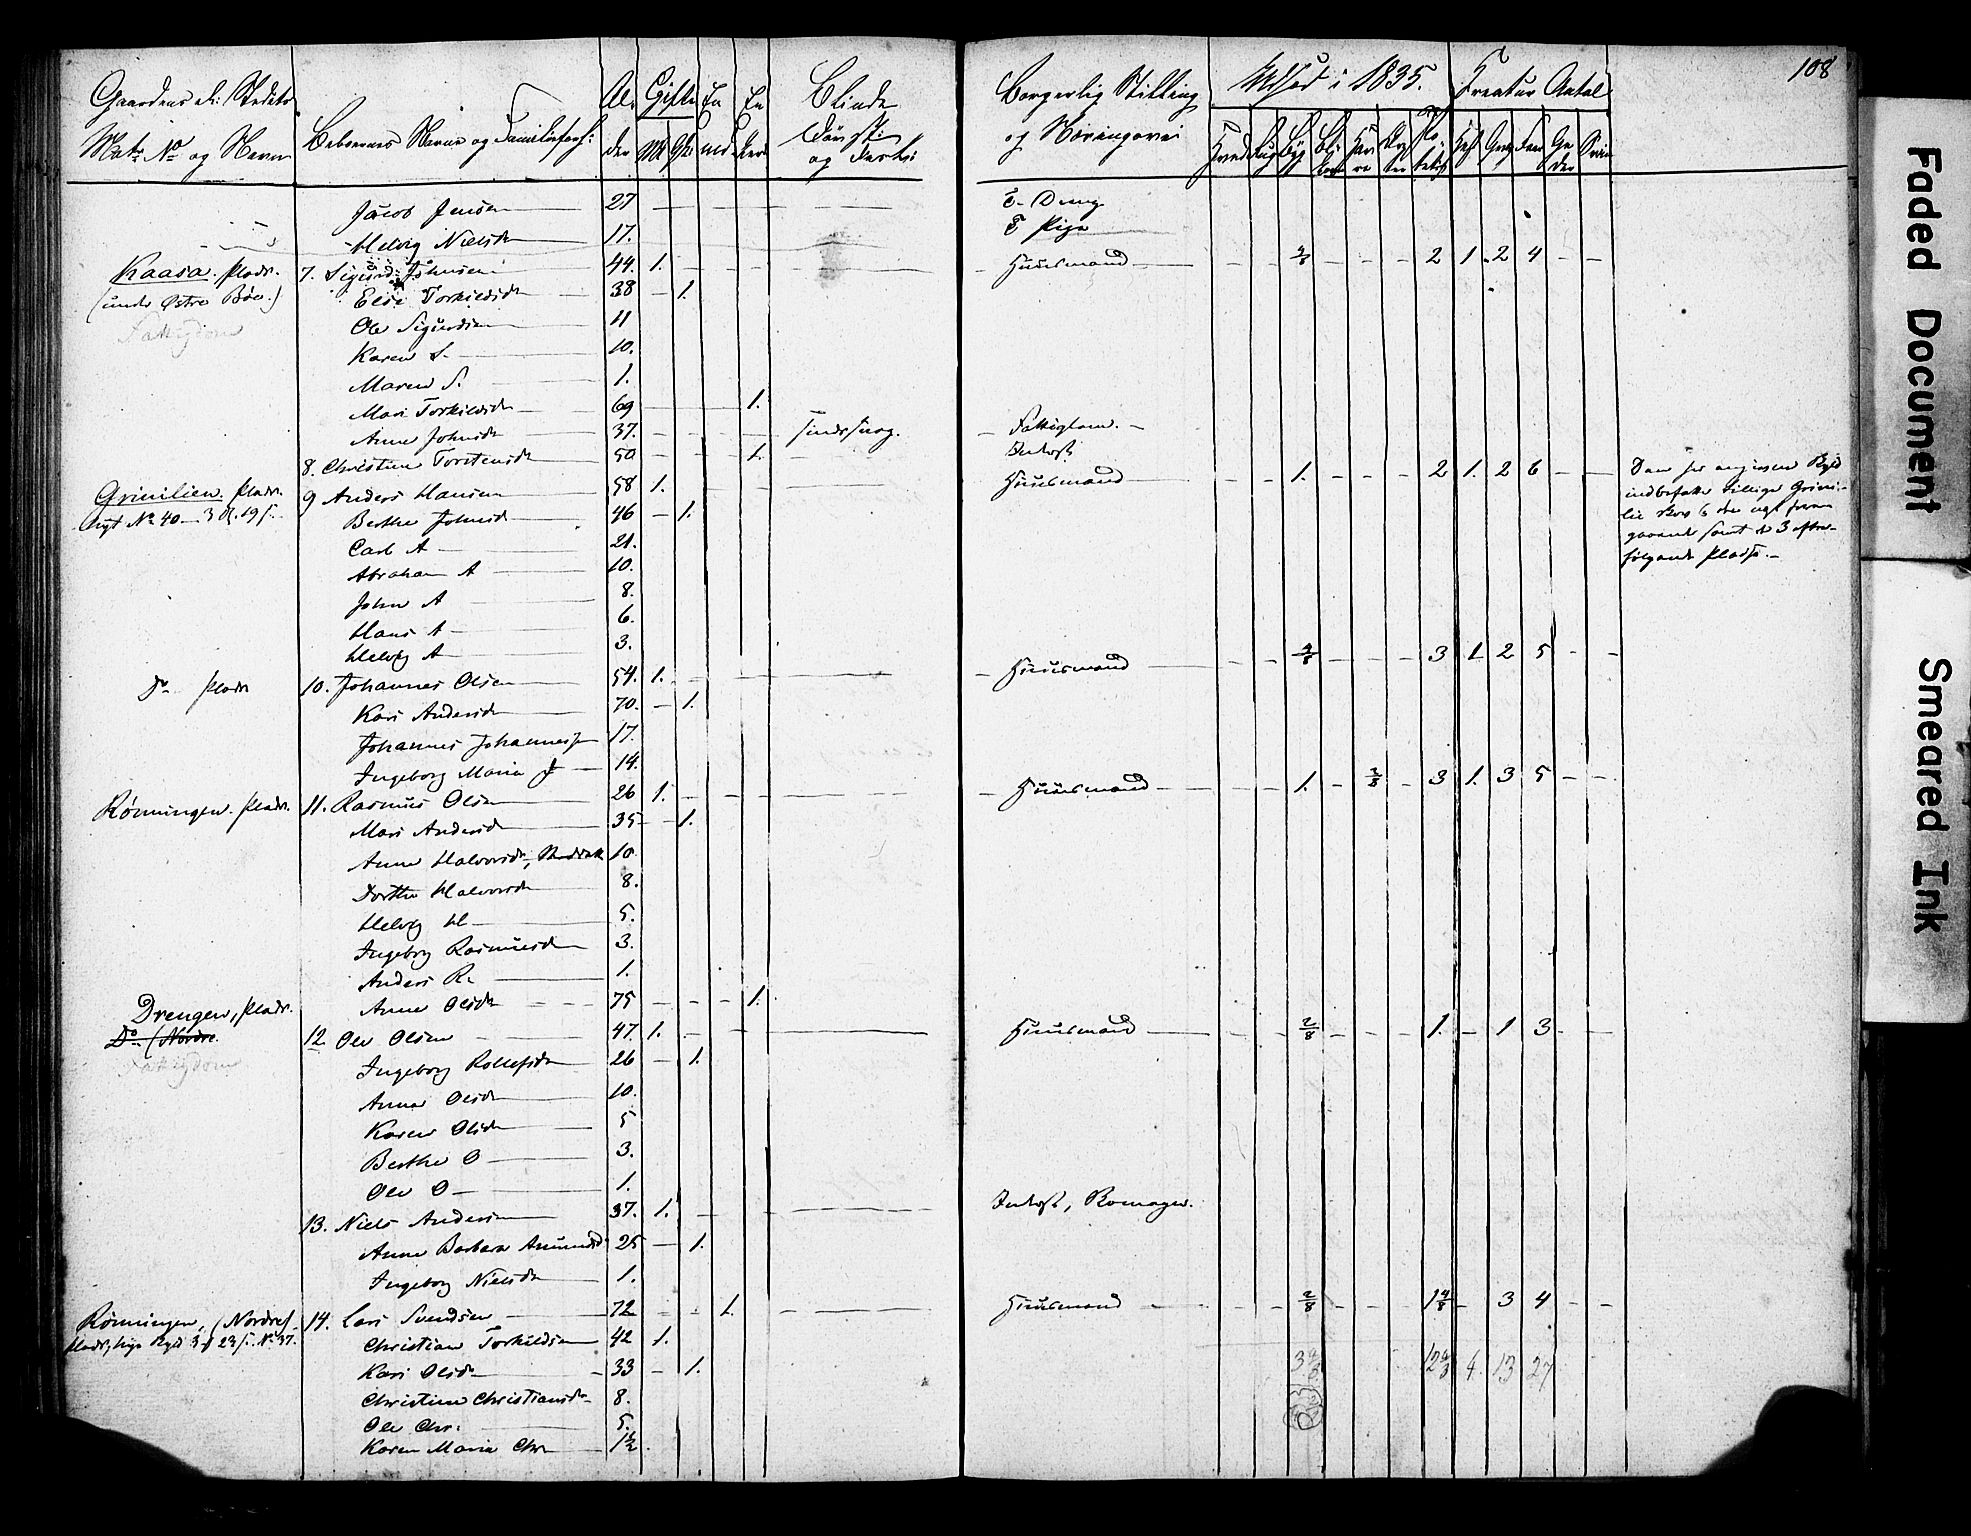 108
Gaardens el: Stedets Matr No og Navn
Beboernes Navne og Familieforh:
Alder
Gifte
M Qv
Enkemd
Enker
Blinde Døvst: og Fjerti
Borgerlig Stilling og Næringsvei
Udsæd i 1835.
Hvede Rug Byg Havre Poteter
Creatur Antal
Hest Qvæg Faar Geder Sviin
Jacob Jensen 27 T. Dreng
Helvig Nielsdr 17. T Pige
Kaasa. Plads. 7. Sigurd Johnsen 44. 1. Huusmand 2 1 2 4
(under Østre Bøe.) Else Torkildsdr 38 1.
Fattigdom Ole Sigurdsen 11
Karen S. 10.
Maren S. 1.
Mari Torkildsdr 69 1.
Anne Johnsdr 37. Sindssvag. Fattiglem.
8. Christine Torstensdr 50 1. Inderst
Grinilien. Plads. 9 Anders Hansen 58 1. Huusmand 1. 2 1. 2 6
Nyt No 40 Berthe Johnsd 46 1.
Carl A 21.
Abraham A 10.
John A 8.
Hans A 6.
Helvig A 3.
Do Plads 10. Johannes Olsen 54. 1. Huusmand 4/8 3 1 2 5
Kari Andersdr 70. 1.
Johannes Johannessen 17.
Ingeborg Maria J 14.
Rønningen. Plads. 11. Rasmus Olsen 26 1. Huusmand 1. 2/8 3 1. 3 5
Mari Andersd 35 1.
Anne Halvorsdr, 10.
Dorthe Halvorsdr 8.
Helvig H 5.
Ingeborg Rasmusdr 3.
Anders R. 1.
Anne Olsdr 75 1.
Drengen, Plads.
Do (Nordre 12 Ole Olsen 47. 1. Huusmand 2/8 1. 1 3
Fattigdom Ingeborg Rollefsdr 26 1.
Anne Olsdr 10.
Karen Olsdr 5
Berthe O 3.
Ole O 1.
13. Niels Andersen 37. 1. Inderst,
Anne Barbara 25 1.
Ingeborg Nielsdr 1.
Rønningen, (Nordre) 14. Lars Svendsen 72 1. Huusmand 2/8 1 4/8 3 4
No 37. Christian Torkildsen 42 1.
Kari Olsdr 33 1. 4. 13 27
Christine Christiansdr 8.
Ole Chr. 5.
Karen Maria Chr 1 1/2.
Den her angivne Skyld
indbefatter tillige
samt de 3 efter-
følgende Pladse.
Faded Document
Smeared Ink